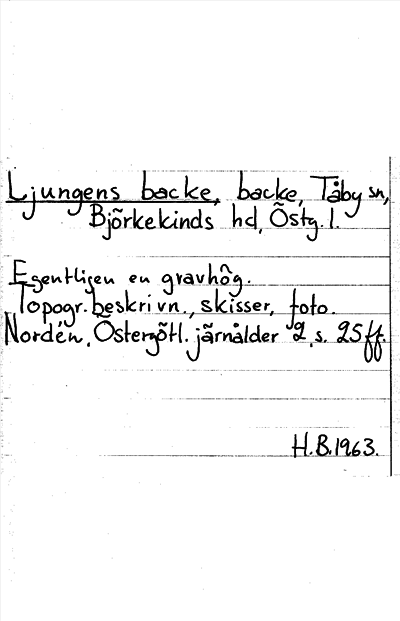 Ljungens backe, backe, Tåby sn,
Björkekinds hd, Östg. l.
Egentligen en gravhög.
Topogr. beskrivn., skisser, foto.
Nordén, Östergötl. järnålder 2, s. 25 ff.
H.B. 1963.